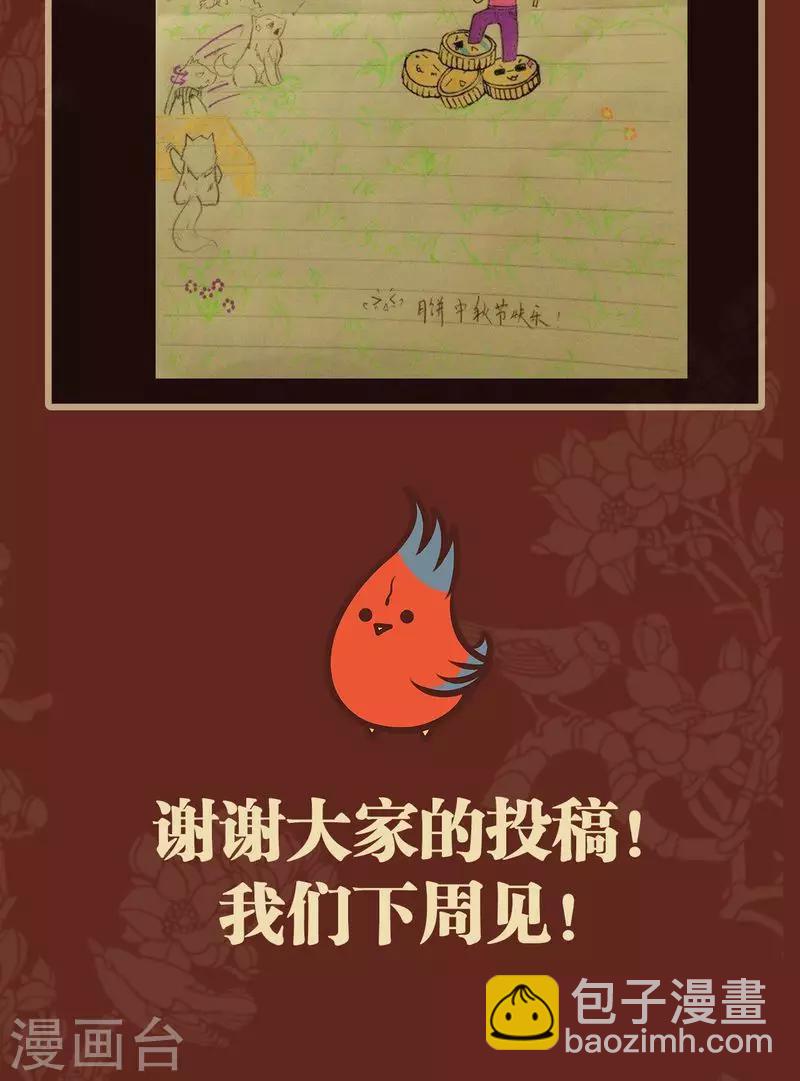 月饼中秋节快乐！
谢谢大家的投稿！
我们下周见！
包子漫畫
漫画台
baozimh.com